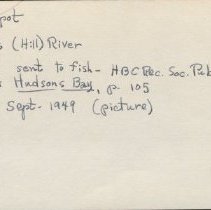 pot
(Hill) River
sent to fish - HBC Rec. Soc. Pub
Hudsons Bay, p. 105
Sept - 1949 (picture)